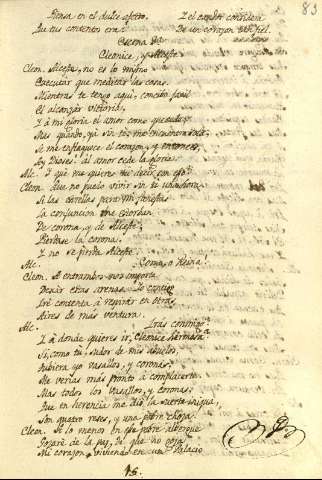 83
Piensa en el dulce afecto
Que tus contentos
Y el candor
De un corazon fiel.
Escena
Cleonice, y Alceste
Cleon. Alceste, no es lo mismo
Executar que meditar las cosas.
Mientras te tengo aqui, concibo facil
El alcanzar victoria,
Y á mi gloria el amor como
Mas quando, ya sin tí, me encuentro sola,
Se me enflaquece el corazon, y entonces,
Ay Dioses! al amor cede la gloria.
Alc. Y qué me quieres decir con eso?
Cleon. Que no puedo vivir sin tu
Si las estrellas para mi funestas
La conjuncion me
De corona, y de Alceste,
Pierdase la corona,
Y no se pierda Alceste.
Alc. Como, ó Reina!
Cleon. A entrambos nos importa
Dexar estas arenas.
Iré contenta á respirar en otras
Aires de más ventura.
Alc. Irás conmigo?
Y á donde quieres ir, Cleonice hermosa?
Si, como tu, sudor de mis abuelos,
Hubiera yo vasallos, y coronas,
Me verias más pronto á complacerte.
Mas todos los vasallos, y coronas,
Que en herencia me dió la suerte iniqua,
Son quatro reses, y una pobre choza.
Cleon. Si lo menos en ese pobre albergue
Gozaré de la paz, de que no goza
Mi corazon, viviendo en Palacio
15.